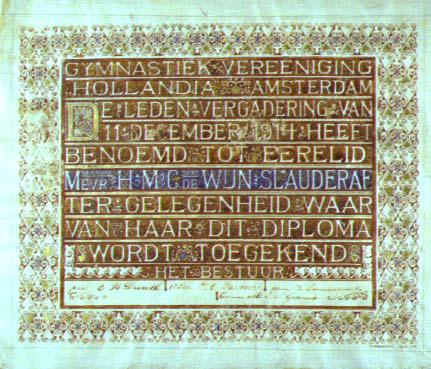 GYMNASTIEK VEREENIGING
HOLLANDIA AMSTERDAM
DE LEDEN VERGADERING VAN
11 DECEMBER 1914 HEEFT
BENOEMD TOT EERELID
MEVR H·M·C·DE WIJN·SLAUDERAF
TER GELEGENHEID WAAR
VAN HAAR DIT DIPLOMA
WORDT TOEGEKEND
HET BESTUUR